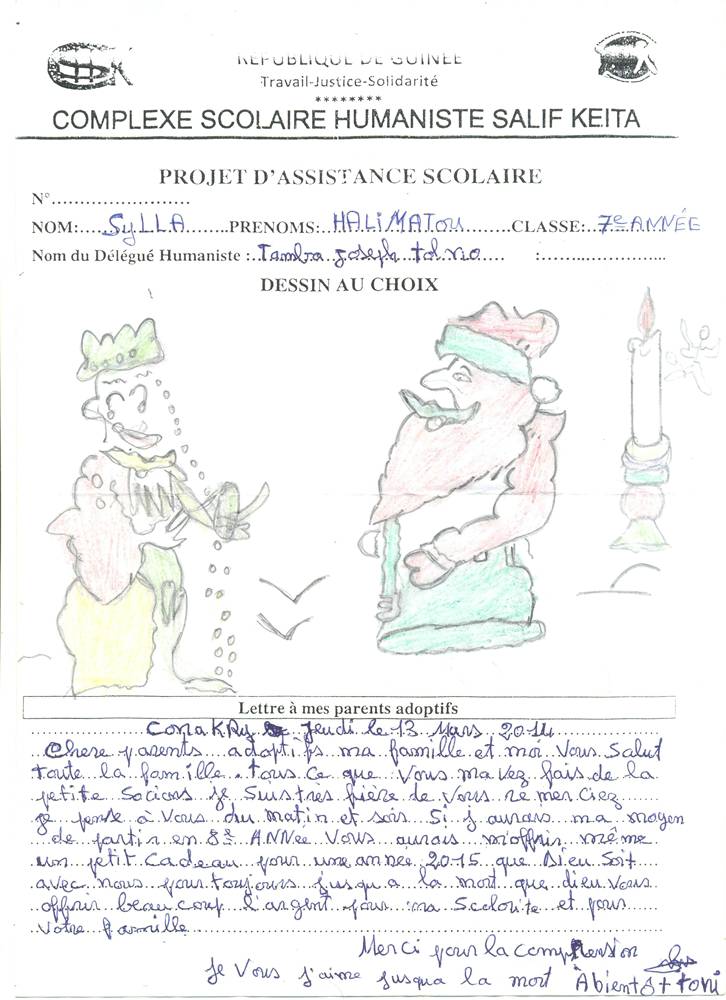 REPUBLIQUE DE GUINEE
Travail-Justice-Solidarité
********
COMPLEXE SCOLAIRE HUMANISTE SALIF KEITA
PROJET D'ASSISTANCE SCOLAIRE
N°......................
NOM:....SyLLA........PRENOMS:..HALiMATou........CLASSE:..7e ANNÉE
Nom du Délégué Humaniste :..Tamba joseph tolno.... :......................
DESSIN AU CHOIX
Lettre à mes parents adoptifs
ConaKRy Jeudi le 13 Mars 2014
Chere parents adoptifs ma famille et moi Vous Salut
toute la famille. tous ce que Vous mavez fais de la
petite je Suis tres fière de Vous re merciez
je pense à Vous du matin et soir Si j'aurais ma moyen
de partir en 8e ANNée Vous aurais m'offrir même
un petit Cadeau pour une annee 2015 que Dieu Soit
avec nous pour toujours jusqu a la mort que dieu Vous
offrir beau coup l'argent pour ma Scolorite et pour
Votre famille
Merci pour la comprension
je Vous j'aime jusqua la mort À bientôt